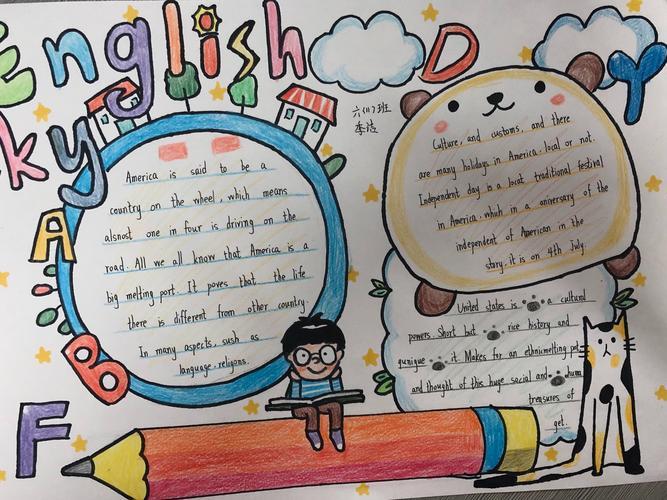 English
D
Y
ky
A
B
F
六(1)班
李洁
America is said to be a
country on the wheel, which means
alsnost one in four is driving on the
road. All we all know that America is a
big melting port. It poves that the life
there is different from other country.
In many aspects, sush as
language, religons.
Culture, and customs, and there
are many holidays in America. local or not.
Independent day is a locat traditional festival
in America, which in a aniversary of the
independent of American in the
story. it is on 4th July.
United states is a cultural
powers. Short but rice history and
qunigue it. Makes for an ethnicmelting pot,
and thought of this huge social and hum
treasures of
get.